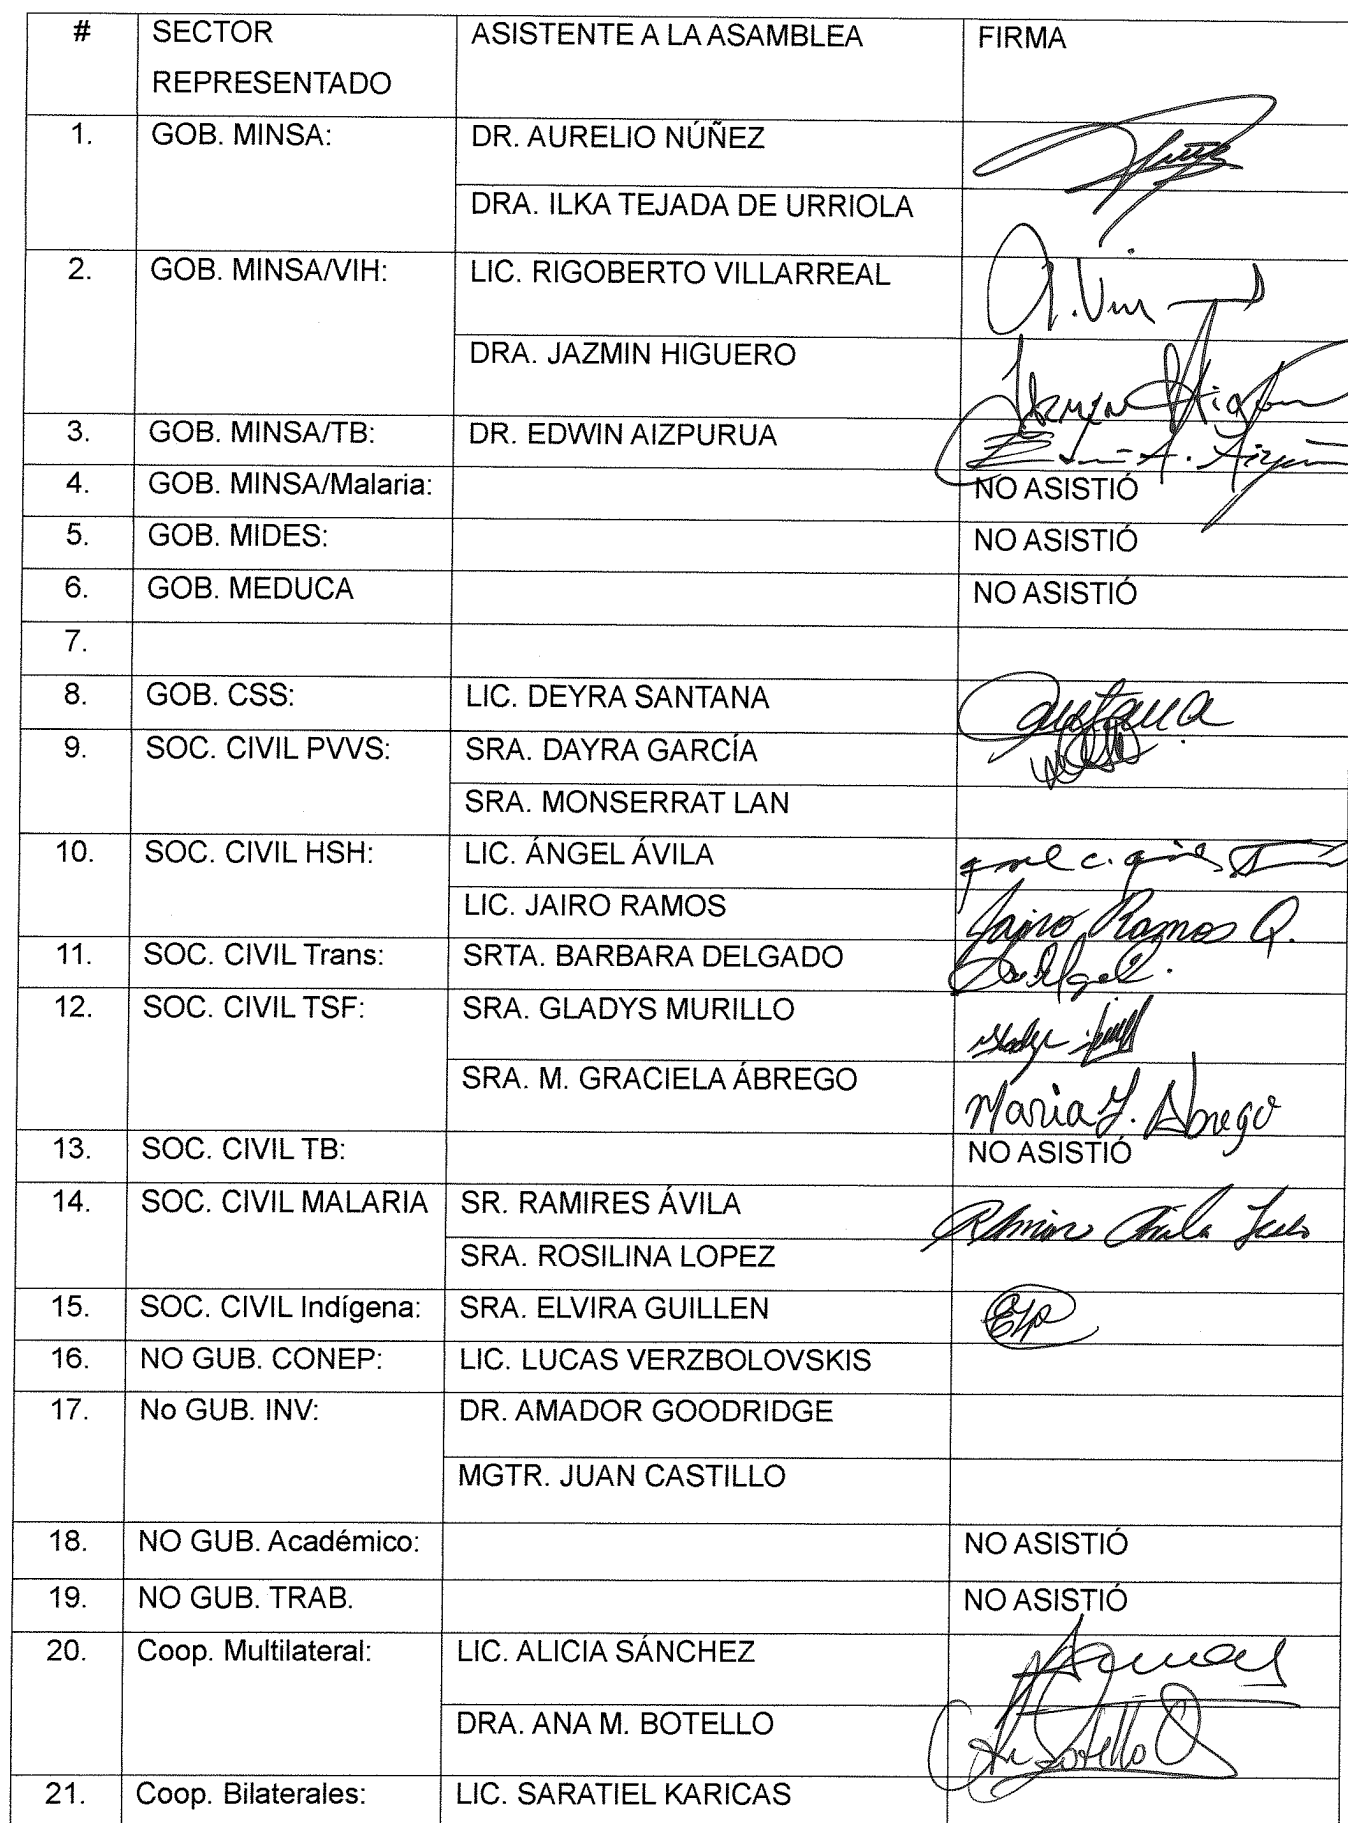 # SECTOR REPRESENTADO ASISTENTE A LA ASAMBLEA FIRMA
1. GOB. MINSA: DR. AURELIO NÚÑEZ
DRA. ILKA TEJADA DE URRIOLA
2. GOB. MINSA/VIH: LIC. RIGOBERTO VILLARREAL
DRA. JAZMIN HIGUERO
3. GOB. MINSA/TB: DR. EDWIN AIZPURUA
4. GOB. MINSA/Malaria: NO ASISTIÓ
5. GOB. MIDES: NO ASISTIÓ
6. GOB. MEDUCA NO ASISTIÓ
7.
8. GOB. CSS: LIC. DEYRA SANTANA
9. SOC. CIVIL PVVS: SRA. DAYRA GARCÍA
SRA. MONSERRAT LAN
10. SOC. CIVIL HSH: LIC. ÁNGEL ÁVILA
LIC. JAIRO RAMOS Jairo Ramos Q.
11. SOC. CIVIL Trans: SRTA. BARBARA DELGADO
12. SOC. CIVIL TSF: SRA. GLADYS MURILLO
SRA. M. GRACIELA ÁBREGO Maria G. Abrego
13. SOC. CIVIL TB: NO ASISTIÓ
14. SOC. CIVIL MALARIA SR. RAMIRES ÁVILA
SRA. ROSILINA LOPEZ
15. SOC. CIVIL Indígena: SRA. ELVIRA GUILLEN
16. NO GUB. CONEP: LIC. LUCAS VERZBOLOVSKIS
17. No GUB. INV: DR. AMADOR GOODRIDGE
MGTR. JUAN CASTILLO
18. NO GUB. Académico: NO ASISTIÓ
19. NO GUB. TRAB. NO ASISTIÓ
20. Coop. Multilateral: LIC. ALICIA SÁNCHEZ
DRA. ANA M. BOTELLO
21. Coop. Bilaterales: LIC. SARATIEL KARICAS